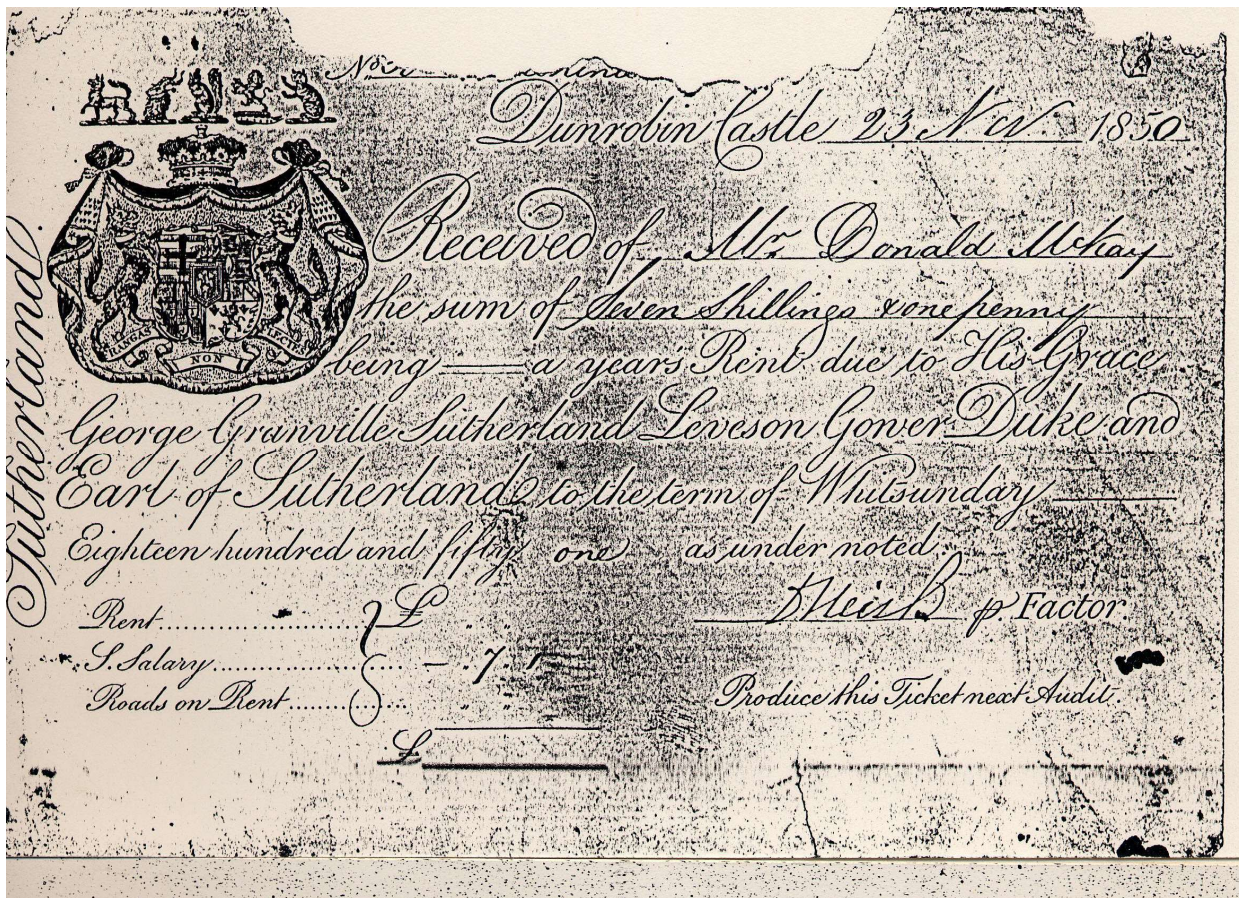 No
Dunrobin Castle 23 Nov. 1850
Received of Mr. Donald McKay
the sum of Seven Shillings & one penny
being a years Rent due to His Grace
George Granville Sutherland Leveson Gower Duke and
Earl of Sutherland to the term of Whitsunday
Eighteen hundred and fifty one as under noted.
p. Factor
Rent £
S. Salary – . 7
Roads on Rent
£
Produce this Ticket next Audit.
NON
Sutherland.